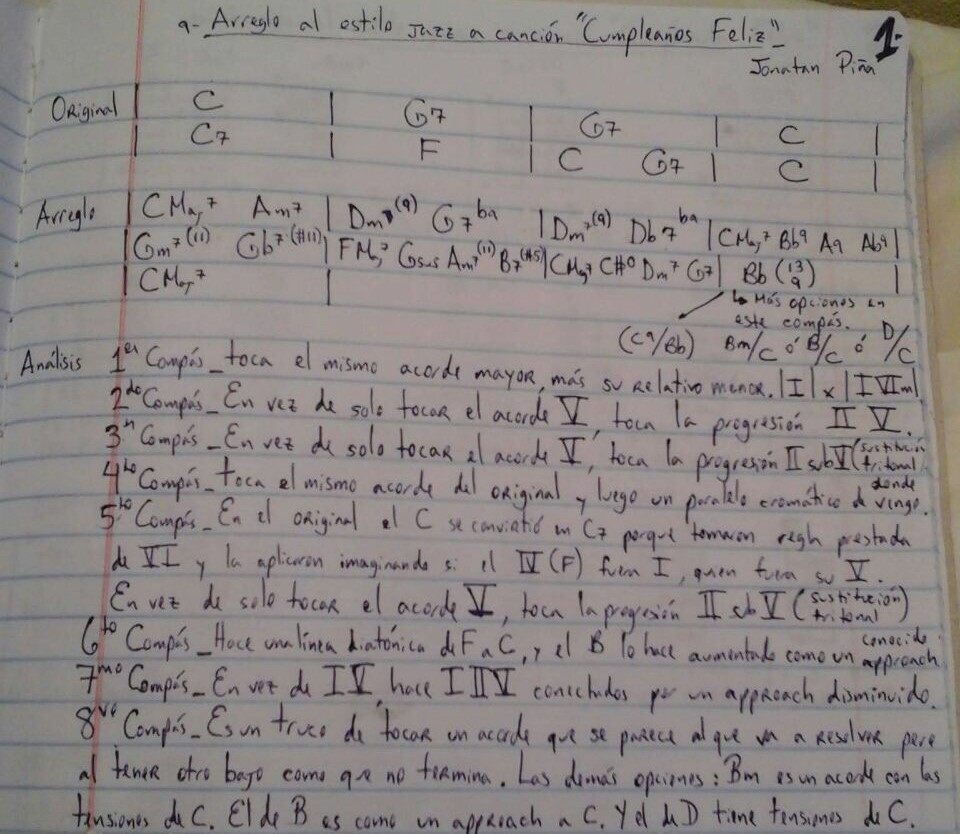 9- Arreglo al estilo Jazz a canción "Cumpleaños Feliz" 1-
Jonatan Piña
Original | C | G7 | G7 | C |
C7 | F | C G7 | C |
Arreglo | CMaj7 Am7 | Dm7(9) G7b9 | Dm7(9) Db7b9 | CMaj7 Bb9 A9 Ab9 |
| Gm7(11) Gb7(#11) | FMaj7 Gsus Am7(11) B7(#5) | CMaj7 C#0 Dm7 G7 | Bb(13 9) |
| CMaj7 |
↳ Más opciones en
este compás.
(C9/Bb) Bm/C ó B/C ó D/C
Análisis 1er Compás_ toca el mismo acorde mayor, más su relativo menor. |I| x |I VIm|
2do Compás_ En vez de solo tocar el acorde V, toca la progresión II V.
3er Compás_ En vez de solo tocar el acorde V, toca la progresión II subV (sustitución tritonal)
4to Compás_ toca el mismo acorde del original y luego un paralelo cromático de donde vengo.
5to Compás_ En el original el C se convirtió en C7 porque tomaron regla prestada
de VI y la aplicaron imaginando si el IV (F) fuera I, quien fuera su V.
En vez de solo tocar el acorde V, toca la progresión II sub V (sustitución tritonal)
6to Compás_ Hace una línea diatónica de F a C, y el B lo hace aumentado como un conocido approach
7mo Compás_ En vez de I V, hace I II V conectados por un approach disminuido.
8vo Compás_ Es un truco de tocar un acorde que se parece al que va a resolver pero
al tener otro bajo como que no termina. Las demás opciones: Bm es un acorde con las
tensiones de C. El de B es como un approach a C. Y el de D tiene tensiones de C.